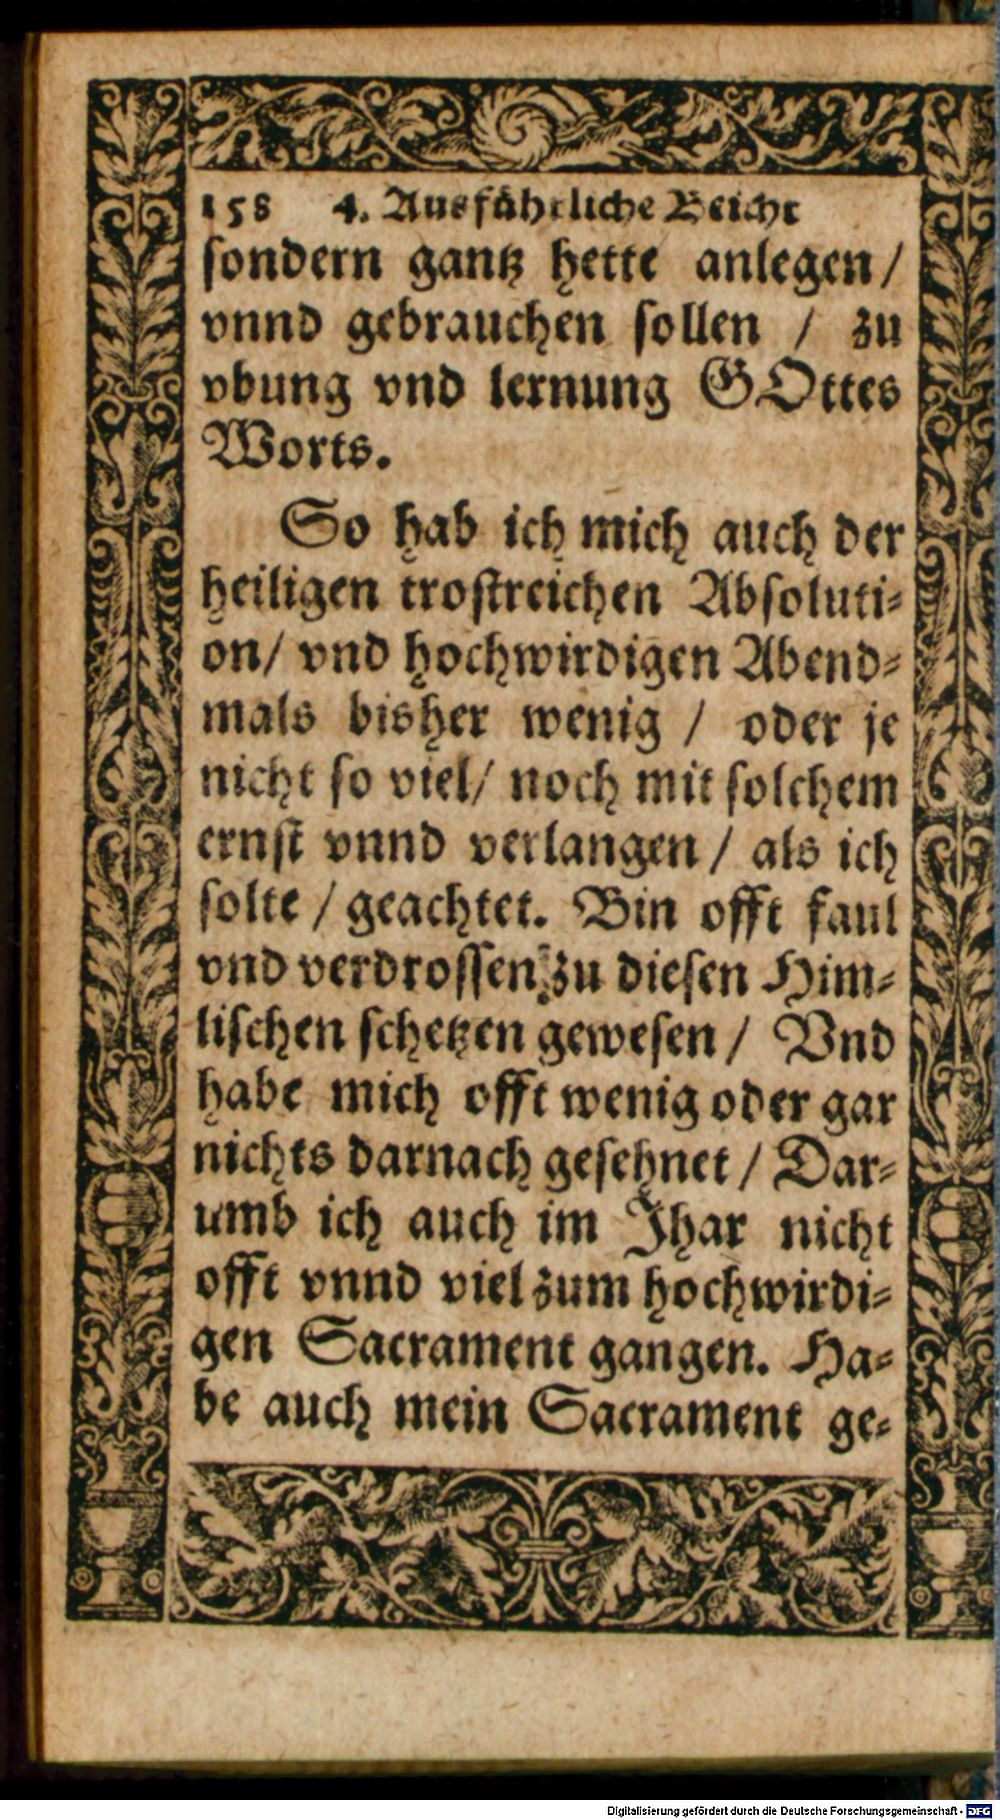 158 4. Ausführliche Beicht
sondern gantz hette anlegen/
vnnd gebrauchen sollen / zu
vbung vnd lernung GOttes
Worts.
So hab ich mich auch der
heiligen trostreichen Absoluti-
on/ vnd hochwirdigen Abend-
mals bisher wenig / oder je
nicht so viel/ noch mit solchem
ernst vnnd verlangen / als ich
solte / geachtet. Bin offt faul
vnd verdrossen zu diesen Him-
lischen schetzen gewesen / Vnd
habe mich offt wenig oder gar
nichts darnach gesehnet / Dar-
umb ich auch im Jhar nicht
offt vnnd viel zum hochwirdi-
gen Sacrament gangen. Ha-
be auch mein Sacrament ge-
Digitalisierung gefördert durch die Deutsche Forschungsgemeinschaft - DFG